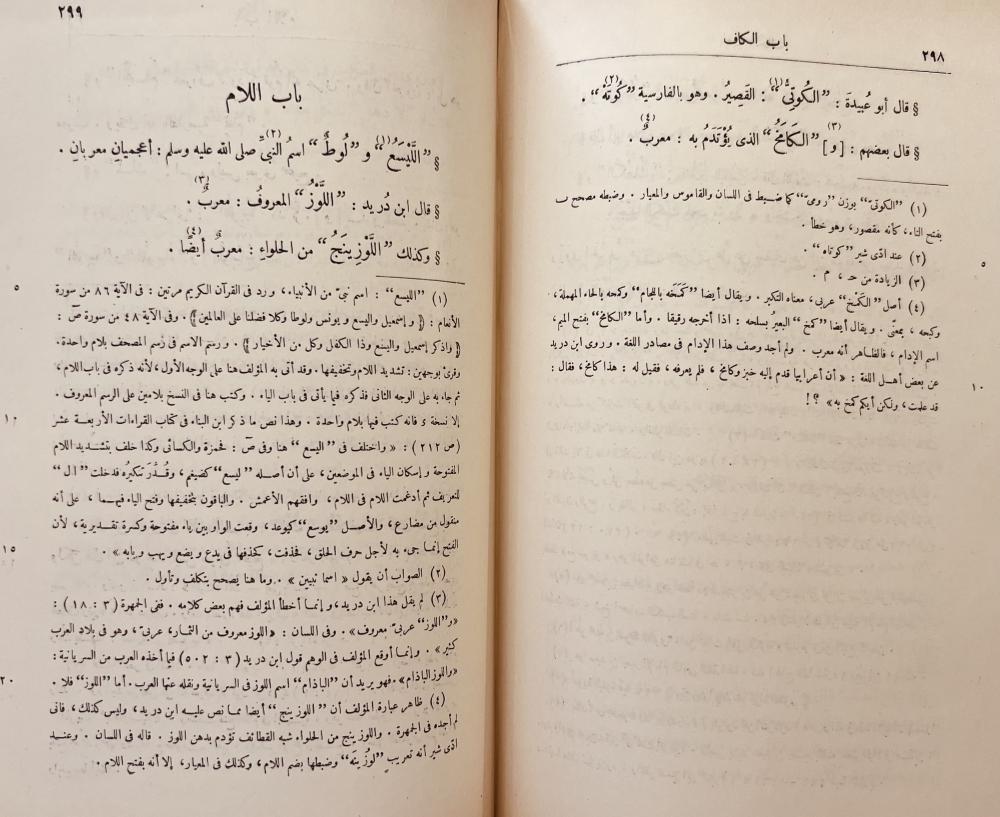 ٢٩٨
باب الكاف
§ قال أبو عُبيدةَ : ”الكُوتِىُّ“ (١) : القَصِيرُ . وهو بالفارسية ”كُوتَهْ“ (٢) .
§ قال بعضهم : [و] (٣) ”الكَامَخُ“ الذى يُؤْتَدَمُ به : معربٌ (٤) .
(١) ”الكوتىّ“ بوزن ”رومىّ“ كما ضبط فى اللسان والقاموس والمعيار . وضبطه مصحح ب
بفتح التاء، كأنه مقصور، وهو خطأ .
(٢) عند ادّى شير ”كوتاه“ .
٥
(٣) الزيادة من حـ ، م .
(٤) أصل ”الكَمْخ“ عربى، معناه التكبر . ويقال أيضا ”كَمَخَه باللجام“ وكمحه بالحاء المهملة،
وكبحه ، بمعنًى . ويقال أيضا ”كمخ“ البعيرُ بسلحه : اذا أخرجه رقيقا . وأما ”الكامخ“ بفتح الميم،
اسم الإدام، فالظاهر أنه معرب . ولم أجد وصف هذا الإدام فى مصادر اللغة . وروى ابن دريد
عن بعض أهل اللغة : «أن أعرابيا قدم إليه خبز وكامخ ، فلم يعرفه، فقيل له : هذا كامخ، فقال :
١٠
قد علمت، ولكن أيكم كمخ به» ؟ !
٢٩٩
باب اللام
§ ”اللَّيْسَعُ“ (١) و ”لُوطٌ“ اسمُ النبىِّ (٢) صلى الله عليه وسلم : أعجميانِ معربانِ .
§ قال ابن دُريد : ”اللَّوْزُ“ المعروفُ : معربٌ (٣) .
§ وكذلك ”اللَّوْزِينَجُ“ من الحلواءِ : معربٌ أيضًا (٤) .
٥
(١) ”الليسع“ : اسم نبىّ من الأنبياء، ورد فى القرآن الكريم مرتين : فى الآية ٨٦ من سورة
الأنعام : ﴿ وإسمعيل واليسع ويونس ولوطا وكلا فضلنا على العالمين ﴾ . وفى الآية ٤٨ من سورة صٓ :
﴿ واذكر إسمعيل واليسع وذا الكفل وكل من الأخيار ﴾ . ورسم الاسم فى رسم المصحف بلام واحدة .
وقرئ بوجهين : تشديد اللام وتخفيفها . وقد أتى به المؤلف هنا على الوجه الأول، لأنه ذكره فى باب اللام،
ثم جاء به على الوجه الثانى فذكره فيما يأتى فى باب الياء . وكتب هنا فى النسخ بلامين على الرسم المعروف .
١٠
إلا نسخة فانه كتب فيها بلام واحدة . وهذا نص ما ذكر ابن البناء فى كتاب القراءات الأربعة عشر
(ص ٢١٢) : « واختلف فى ”اليسع“ هنا وفى صٓ : فحمزة والكسائى وكذا خلف بتشديد اللام
المفتوحة وإسكان الياء فى الموضعين، على أن أصله ”ليسع“ كضيغم، وقُدِّرَ تنكيرُه فدخلت ”ال“
للتعريف ثم أدغمت اللام فى اللام، وافقهم الأعمش . والباقون بتخفيفها وفتح الياء فيهما ، على أنه
منقول من مضارع، والأصل ”يوسع“ كيوعد، وقعت الواو بين ياء مفتوحة وكسرة تقديرية، لأن
١٥
الفتح إنما جىء به لأجل حرف الحلق، فحذفت، كحذفها فى يدع ويضع ويهب وبابه» .
(٢) الصواب أن يقول « اسما نبيين » . وما هنا يصحح بتكلف وتأول .
(٣) لم يقل هذا ابن دريد، وإنما أخطأ المؤلف فهم بعض كلامه . ففى الجمهرة (٣ : ١٨) :
«و”اللوز“ عربىّ معروف» . وفى اللسان : «اللوز معروف من الثمار، عربىّ، وهو فى بلاد العرب
كثير» . وإنما أوقع المؤلف فى الوهم قول ابن دريد (٣ : ٥٠٢) فيما أخذه العرب من السريانية :
٢٠
«واللوز الباذام» . فهو يريد أن ”الباذام“ اسم اللوز فى السريانية ونقله عنها العرب . أما ”اللوز“ فلا .
(٤) ظاهر عبارة المؤلف أن ”اللوزينج“ أيضا مما نص عليه ابن دريد، وليس كذلك، فانى
لم أجده فى الجمهرة . واللوزينج من الحلواء شبه القطائف تؤدم بدهن اللوز . قاله فى اللسان . وعند
ادّى شير أنه تعريب ”لوزُينَه“ وضبطها بضم اللام، وكذلك فى المعيار، إلا أنه بفتح اللام .